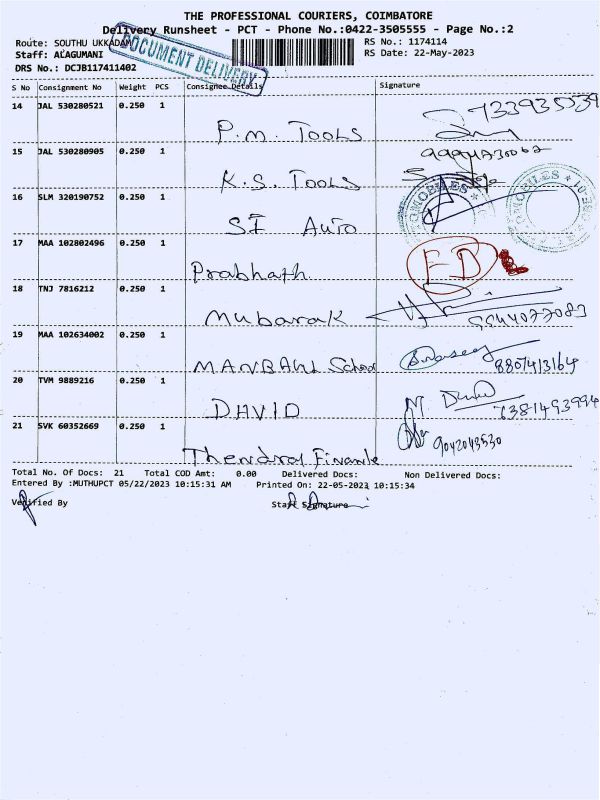 THE PROFESSIONAL COURIERS, COIMBATORE
Delivery Runsheet - PCT - Phone No.:0422-3505555 - Page No.:2
Route: SOUTHU UKKADAM
RS No.: 1174114
Staff: ALAGUMANI
RS Date: 22-May-2023
DRS No.: DCJB117411402
DOCUMENT DELIVERY
S No Consignment No Weight PCS Consignee Details Signature
14 JAL 530280521 0.250 1
P.M. TOOLS
15 JAL 530280905 0.250 1
K.S. TOOLS
16 SLM 320190752 0.250 1
SI Auto
17 MAA 102802496 0.250 1
Prabhath. ED
18 TNJ 7816212 0.250 1
Mubarak
19 MAA 102634002 0.250 1
8807413164
20 TVM 9889216 0.250 1
DAVID
21 SVK 60352669 0.250 1
9042043530
Thendral Finance
Total No. Of Docs: 21 Total COD Amt: 0.00 Delivered Docs: Non Delivered Docs:
Entered By :MUTHUPCT 05/22/2023 10:15:31 AM Printed On: 22-05-2023 10:15:34
Verified By Staff Signature